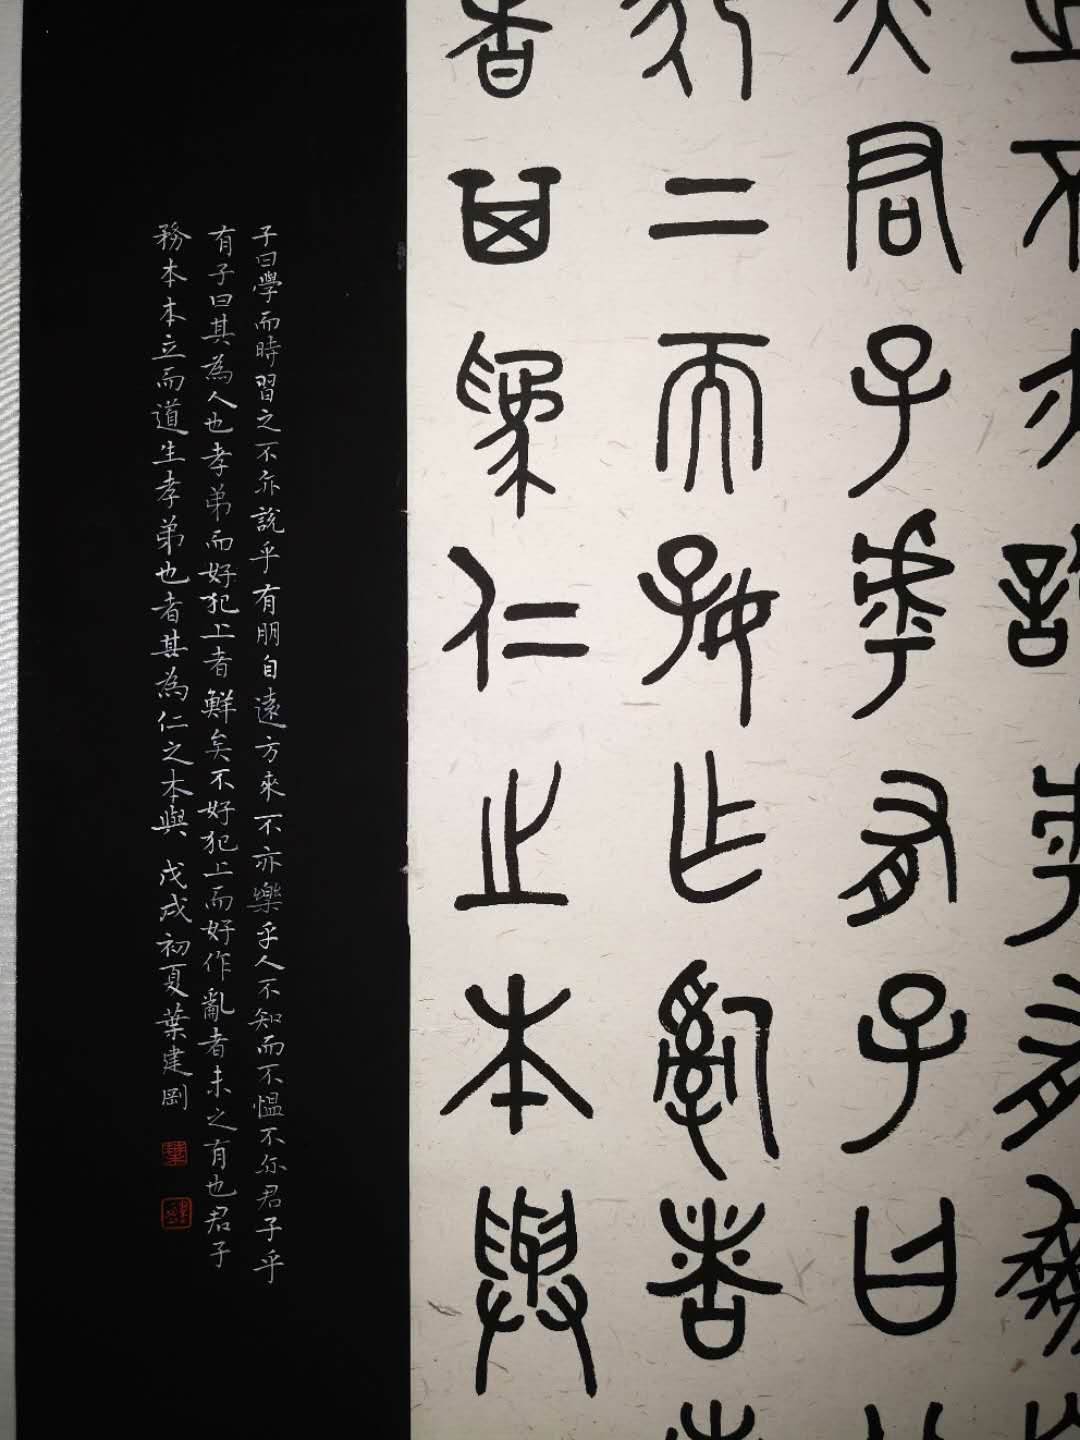 且不亦說乎有
矣君子乎有子曰
上而好作亂者
者其為仁之本與
子曰學而時習之不亦說乎有朋自遠方來不亦樂乎人不知而不愠不亦君子乎
有子曰其為人也孝弟而好犯上者鮮矣不好犯上而好作亂者未之有也君子
務本本立而道生孝弟也者其為仁之本與 戊戌初夏葉建剛